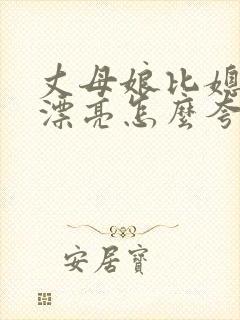 丈母娘比媳
漂亮怎麼夸
安居寶